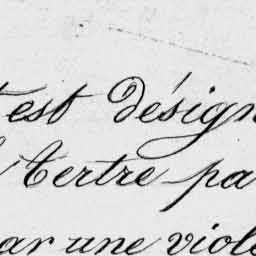 est désign
Tertre pa
par une viol